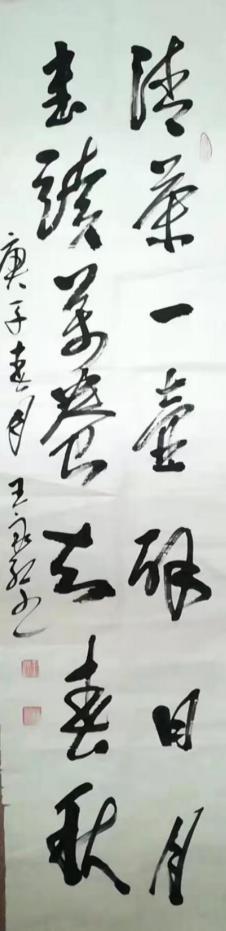 清茶一壶醉日月
书读万卷知春秋
庚子春月 王家红书